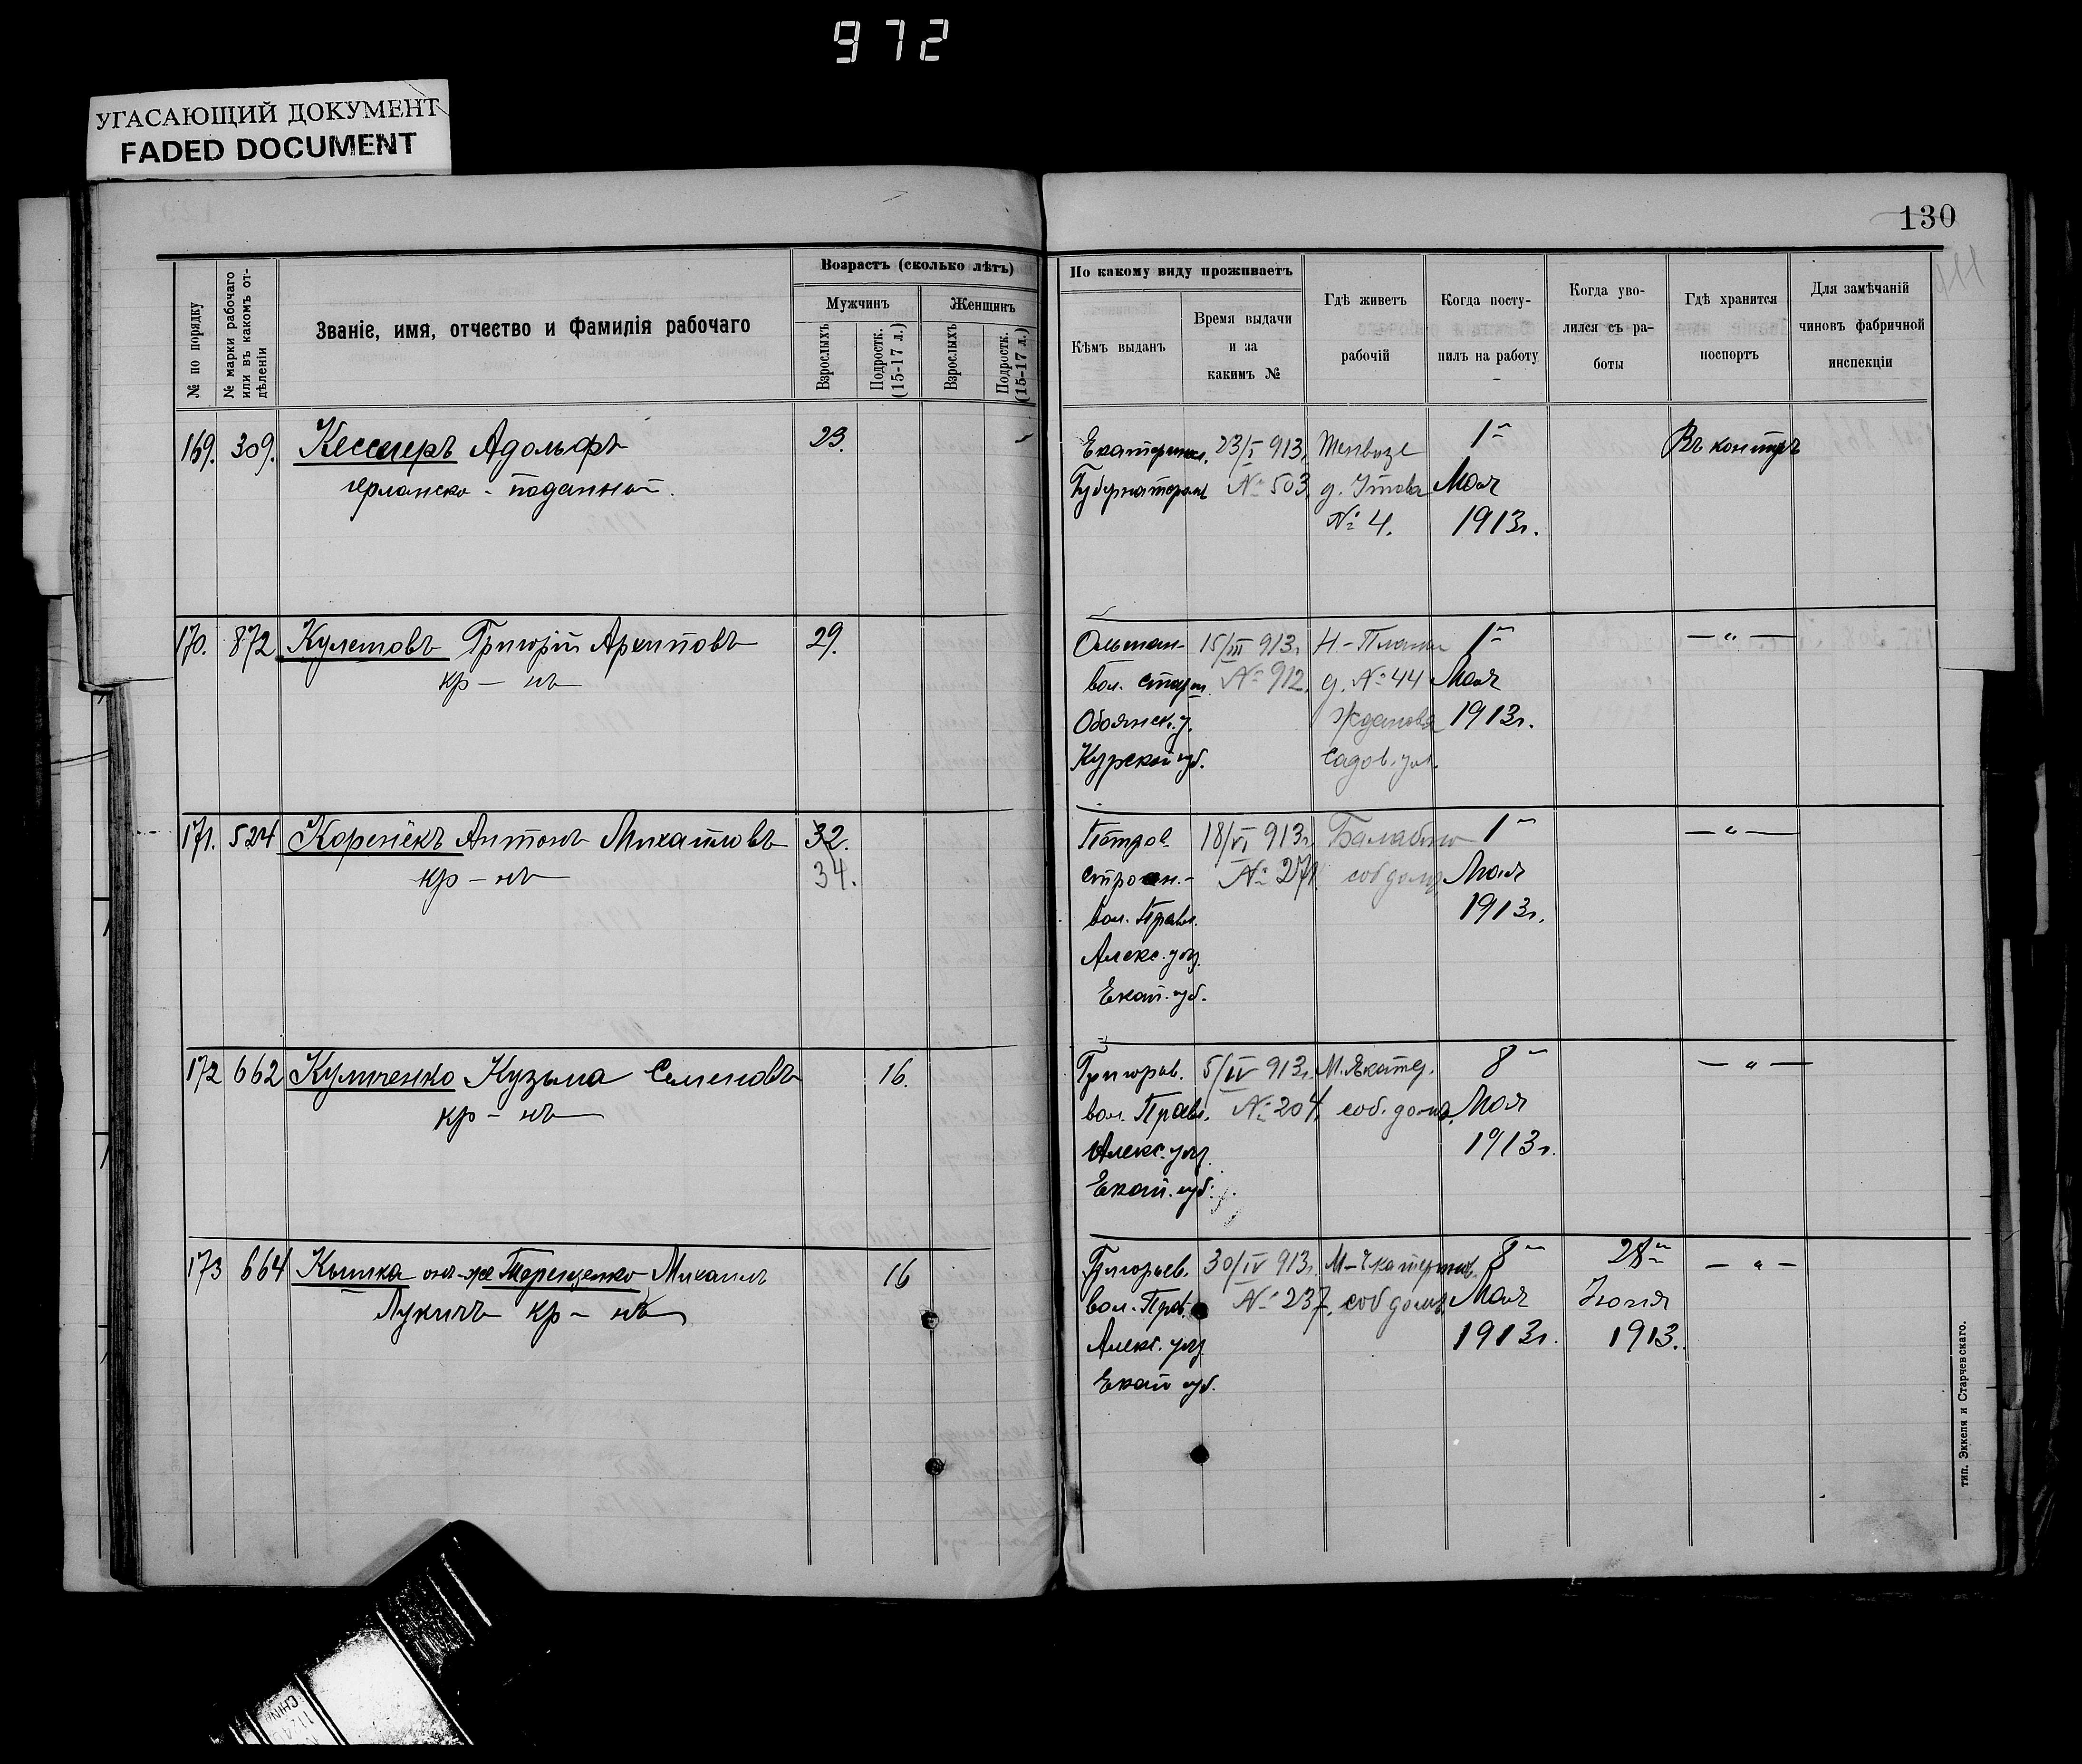 972
УГАСАЮЩИЙ ДОКУМЕНТ
FADED DOCUMENT
130
№ по порядку
№ марки рабочаго
или въ какомъ от-
дѣленіи
Званіе, имя, отчество и фамилія рабочаго
Возрастъ (сколько лѣтъ)
Мужчинъ
Женщинъ
Взрослыхъ
Подростк.
(15-17 л.)
Взрослыхъ
Подростк.
(15-17 л.)
По какому виду проживаетъ
Кѣмъ выданъ
Время выдачи
и за
какимъ №
Гдѣ живетъ
рабочій
Когда посту-
пилъ на работу
Когда уво-
лился съ ра-
боты
Гдѣ хранится
поспортъ
Для замѣчаній
чиновъ фабричной
инспекціи
169. 309. Адольфъ 23.
Губернаторомъ
23/I 913.
№ 503.
№ 4.
1
Мая
1913г.
Въ
170. 872 Григорій Архиповъ 29.
кр-нъ
вол. стар.
Обоянск. у.
Курской губ.
15/III 913г
№ 912.
д. № 44
Жданова
Садов. ул.
1
Мая
1913г.
— " —
171. 524 Антонъ Михайловъ 32.
кр-нъ 34.
вол. Правл.
Алекс. уѣз.
Екат. губ.
18/VI 913г.
№ 271.
соб. домъ
1
Мая
1913г.
— " —
172 662 Кузьма Семеновъ 16.
кр-нъ
вол. Правл.
Алекс. уѣз.
Екат. губ.
5/IV 913г.
№ 204.
соб. домъ
8
Мая
1913г.
— " —
173 664 онъ-же Терещенко Михаилъ 16
Лукичъ кр-нъ
Григорьев.
вол. Прав.
Алекс. уѣз
Екат губ.
30/IV 913г.
№ 237.
соб домъ
8
Мая
1913г.
28
1913.
— " —
тип. Эккеля и Старчевскаго.